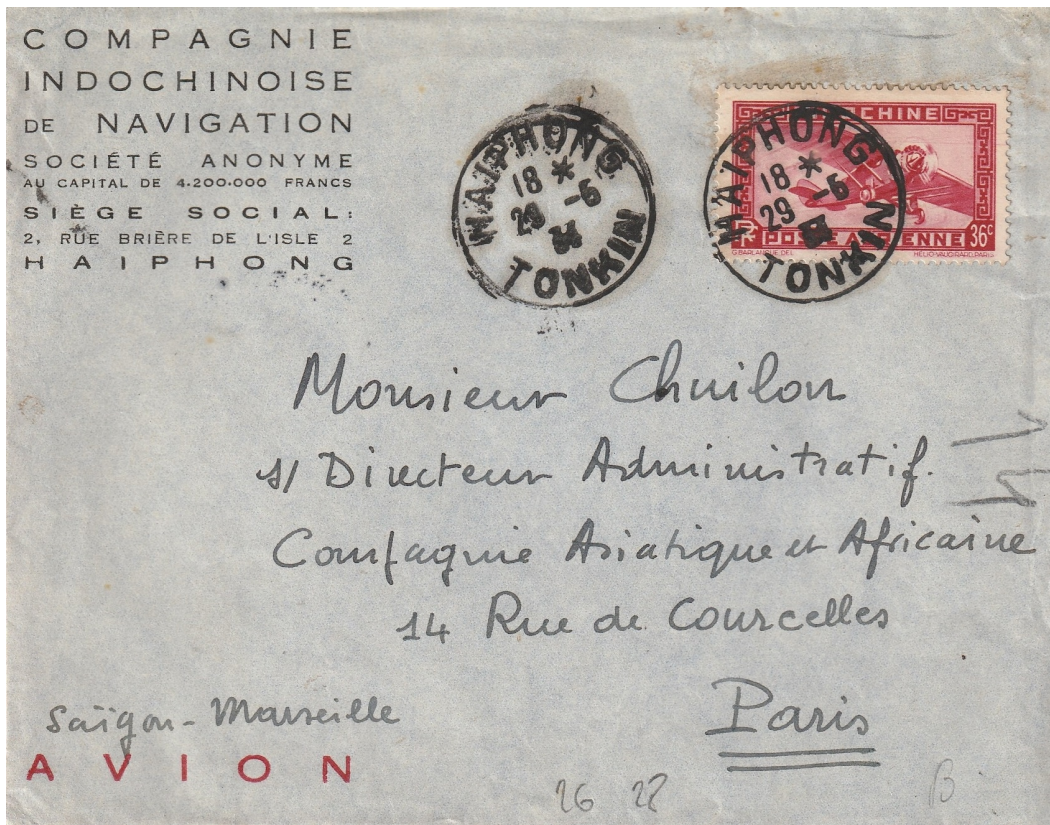 COMPAGNIE
INDOCHINOISE
DE NAVIGATION
SOCIÉTÉ ANONYME
AU CAPITAL DE 4.200.000 FRANCS
SIÈGE SOCIAL:
2, RUE BRIÈRE DE L'ISLE 2
HAIPHONG
HAIPHONG
18 *
29 -6
TONKIN
HAIPHONG
18 *
29 -6
TONKIN
INDOCHINE
RF POSTE AÉRIENNE 36c
G.BARLANGUE.DEL. HÉLIO-VAUGIRARD.PARIS
Monsieur Chuilon
s/ Directeur Administratif.
Compagnie Asiatique et Africaine
14 Rue de Courcelles
Paris
Saïgon - Marseille
AVION
26 28
B